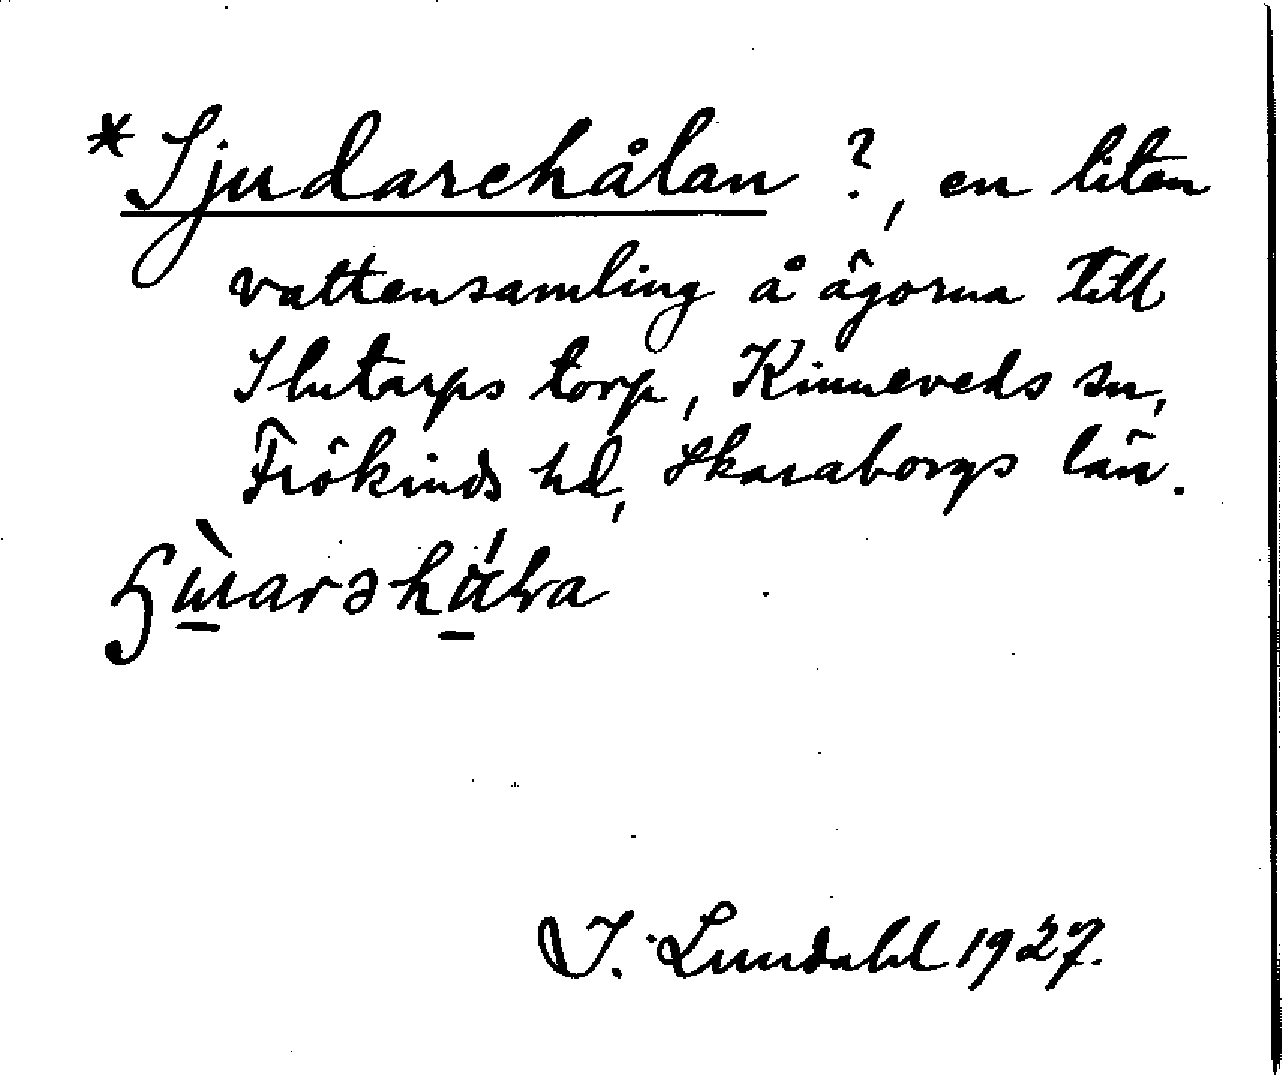 *Sjudarehålan ?, en liten
vattensamling å ägorna till
Slutarps torp, Kinneveds sn,
Frökinds hd, Skaraborgs län.
I. Lundahl 1927.